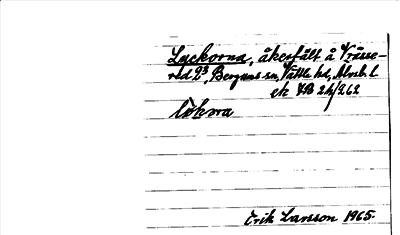 Luckorna, åkerfält å Vrässe-
red 9³, Bergums sn, Vättle hd, Älvsb. l
ek 7B 2h/262
lòkωrα
Erik Larsson 1965.